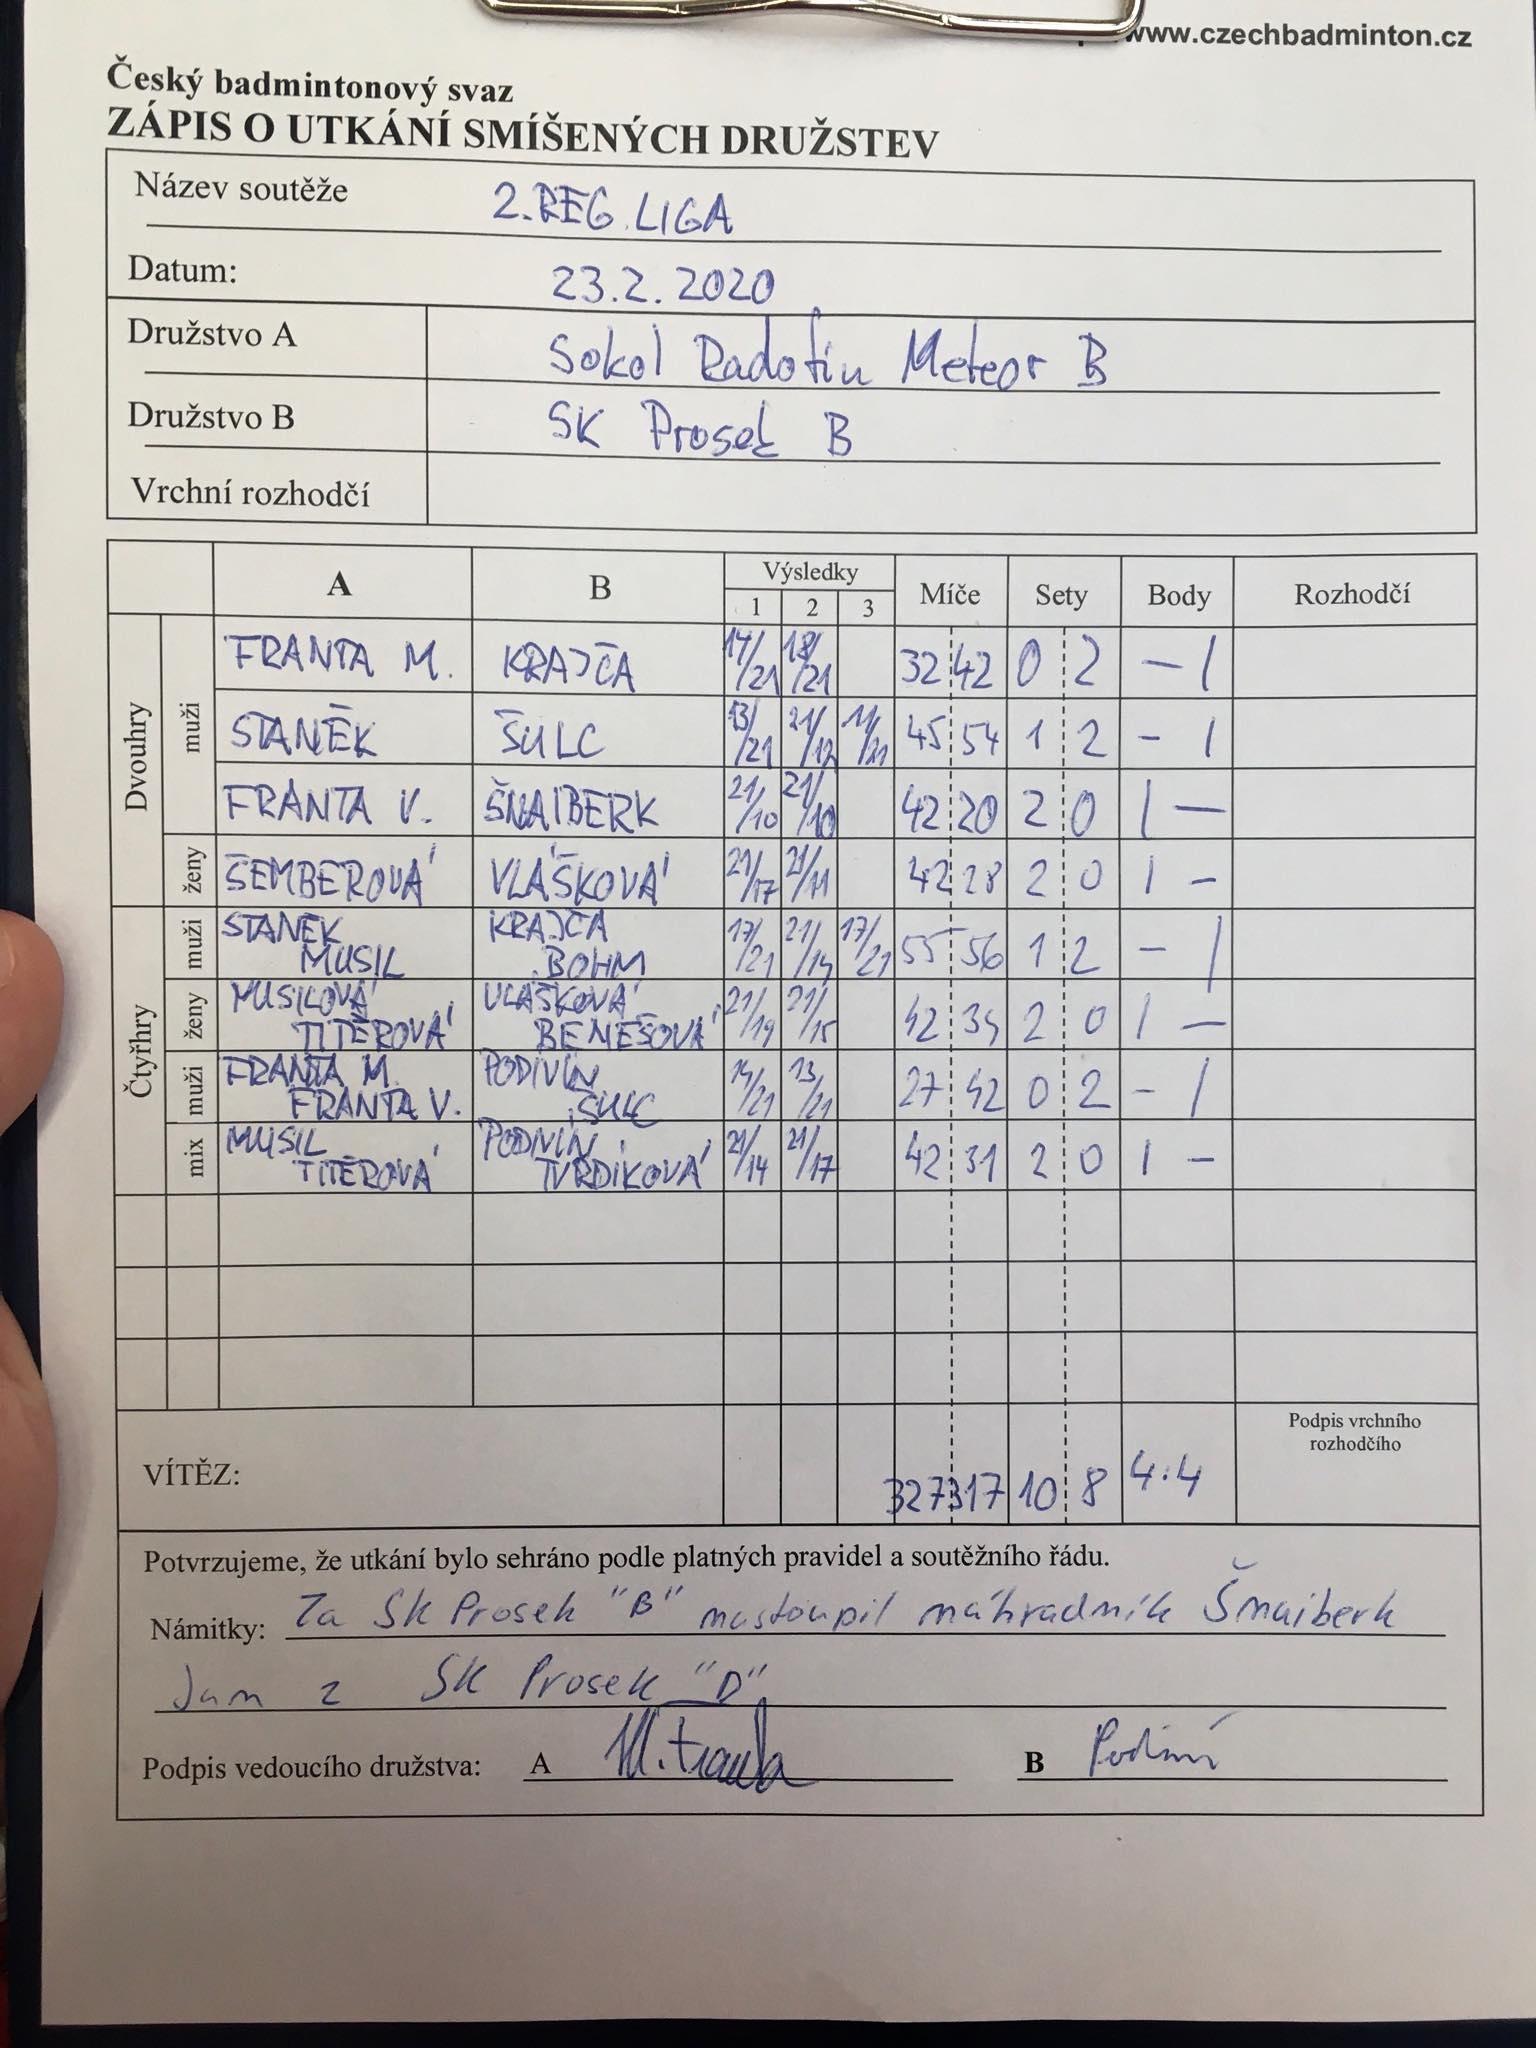 www.czechbadminton.cz
Český badmintonový svaz
ZÁPIS O UTKÁNÍ SMÍŠENÝCH DRUŽSTEV
Název soutěže 2. REG. LIGA
Datum: 23.2.2020
Družstvo A Sokol Radotín Meteor B
Družstvo B SK Prosek B
Vrchní rozhodčí
A B Výsledky 1 2 3 Míče Sety Body Rozhodčí
Dvouhry
muži
FRANTA M. KRAJČA 14/21 18/21 32 42 0 2 – 1
STANĚK ŠULC 13/21 21/12 11/21 45 54 1 2 – 1
FRANTA V. ŠNAIBERK 21/10 21/10 42 20 2 0 1 –
ženy ŠEMBEROVÁ VLÁŠKOVÁ 21/17 21/11 42 28 2 0 1 –
Čtyřhry
muži STANĚK MUSIL KRAJČA BOHM 17/21 21/14 17/21 55 56 1 2 – 1
ženy MUSILOVÁ TITĚROVÁ VLÁŠKOVÁ BENEŠOVÁ 21/19 21/15 42 34 2 0 1 –
muži FRANTA M. FRANTA V. PODIVÍN ŠULC 14/21 13/21 27 42 0 2 – 1
mix MUSIL TITĚROVÁ PODIVÍN TVRDÍKOVÁ 21/14 21/17 42 31 2 0 1 –
VÍTĚZ: 327 317 10 8 4:4
Podpis vrchního
rozhodčího
Potvrzujeme, že utkání bylo sehráno podle platných pravidel a soutěžního řádu.
Námitky: Za SK Prosek "B" nastoupil náhradník Šnaiberk
Jan z SK Prosek "D"
Podpis vedoucího družstva: A M. Franta B Podiví